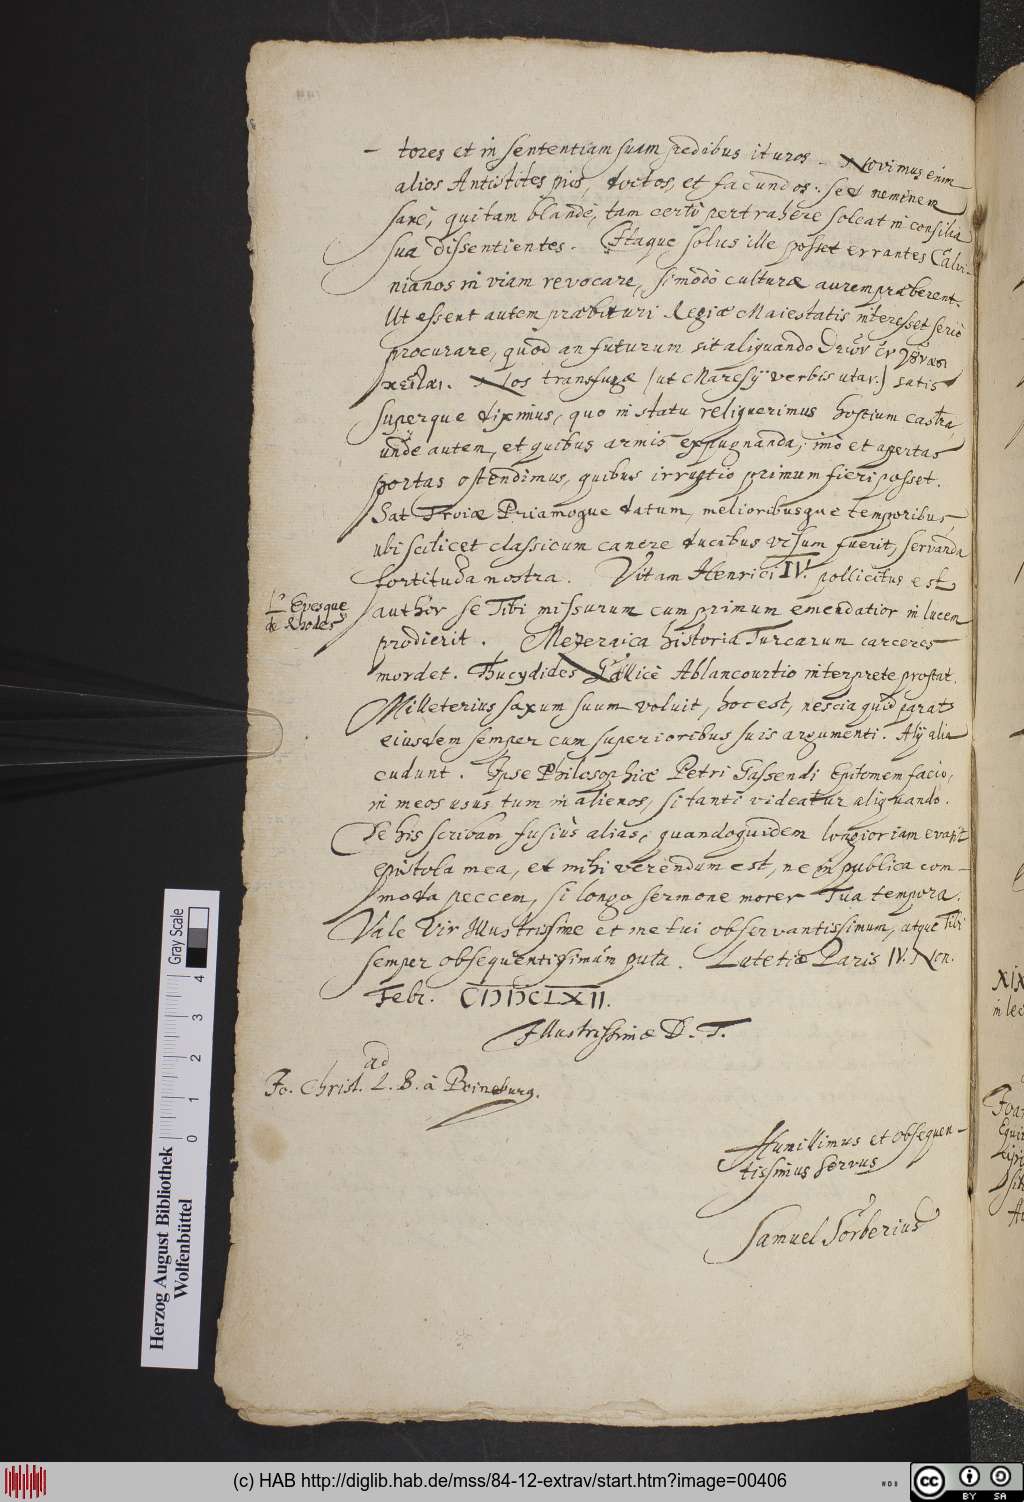 - tores et in sententiam suam pedibus ituros. Novimus enim
alios Antistites pios, doctos, et facundos: sed neminem
sanè, qui tam blandè, tam certò pertrahere soleat in consilia
sua dissentientes. Itaque solus ille posset errantes Calvi-
nianos in viam revocare, si modò culturæ aurem præberent.
Ut essent autem præbituri Regiæ Maiestatis interesset seriò
procurare, quod an futurum sit aliquando
Nos transfugæ (ut Maresij verbis utar) satis
superque diximus, quo in statu reliquerimus hostium castra,
unde autem, et quibus armis expugnanda; imò et apertas
portas ostendimus, quibus irruptio primum fieri posset.
Sat Troiæ Priamoque datum, melioribusque temporibus,
ubi scilicet classicum canere ducibus visum fuerit, servanda
fortitudo nostra. Vitam Henrici IV. pollicitus est
L' Evesque
de Rhodes
author se Tibi missurum cum primum emendatior in lucem
prodierit. Mezeraica historia Turcarum carceres
mordet. Thucydides Gallicè Ablancourtio interprete prostat.
Milleterius saxum suum voluit, hoc est, nescia quid parat
eiusdem semper cum superioribus suis argumenti. Alij alia
cudunt. Ipse Philosophiæ Petri Gassendi Epitomen facio,
in meos usus tum in alienos, si tanti videatur aliquando.
De his scribam fusiùs alias, quandoquidem longior iam evasit
epistola mea, et mihi verendum est, ne in publica com-
moda peccem, si longo sermone morer Tua tempora.
Vale Vir Illustrissime et me tui observantissimum, atque Tibi
semper obsequentissimum puta. Lutetiæ Paris IV. Non.
Febr. CIƆIƆCLXII.
Illustrissimæ D. T.
ad
Jo. Christ. L. B. à Boineburg.
Humillimus et obsequen-
tissimus servus
Samuel Sorberius
Gray Scale
0 1 2 3 4
Herzog August Bibliothek
Wolfenbüttel
(c) HAB http://diglib.hab.de/mss/84-12-extrav/start.htm?image=00406
cc BY SA